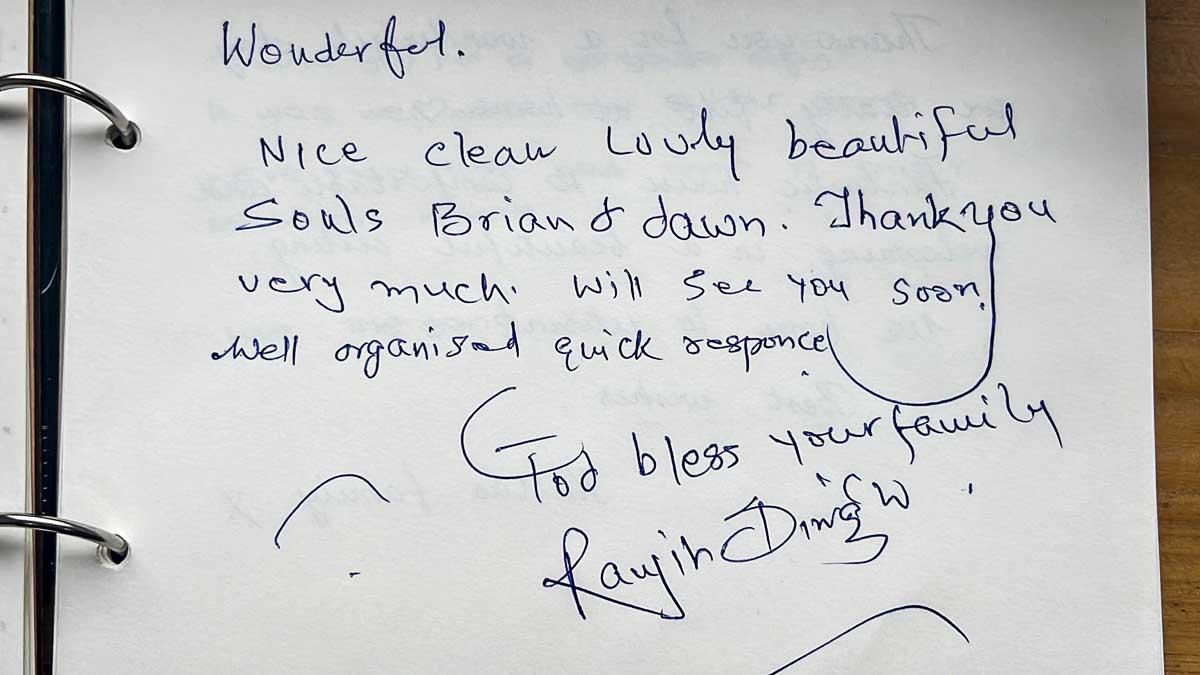 Wonderful.
Nice clean Lovly beautiful
Souls Brian & dawn. Thank you
very much. Will see you soon.
Well organised quick responce
God bless your family